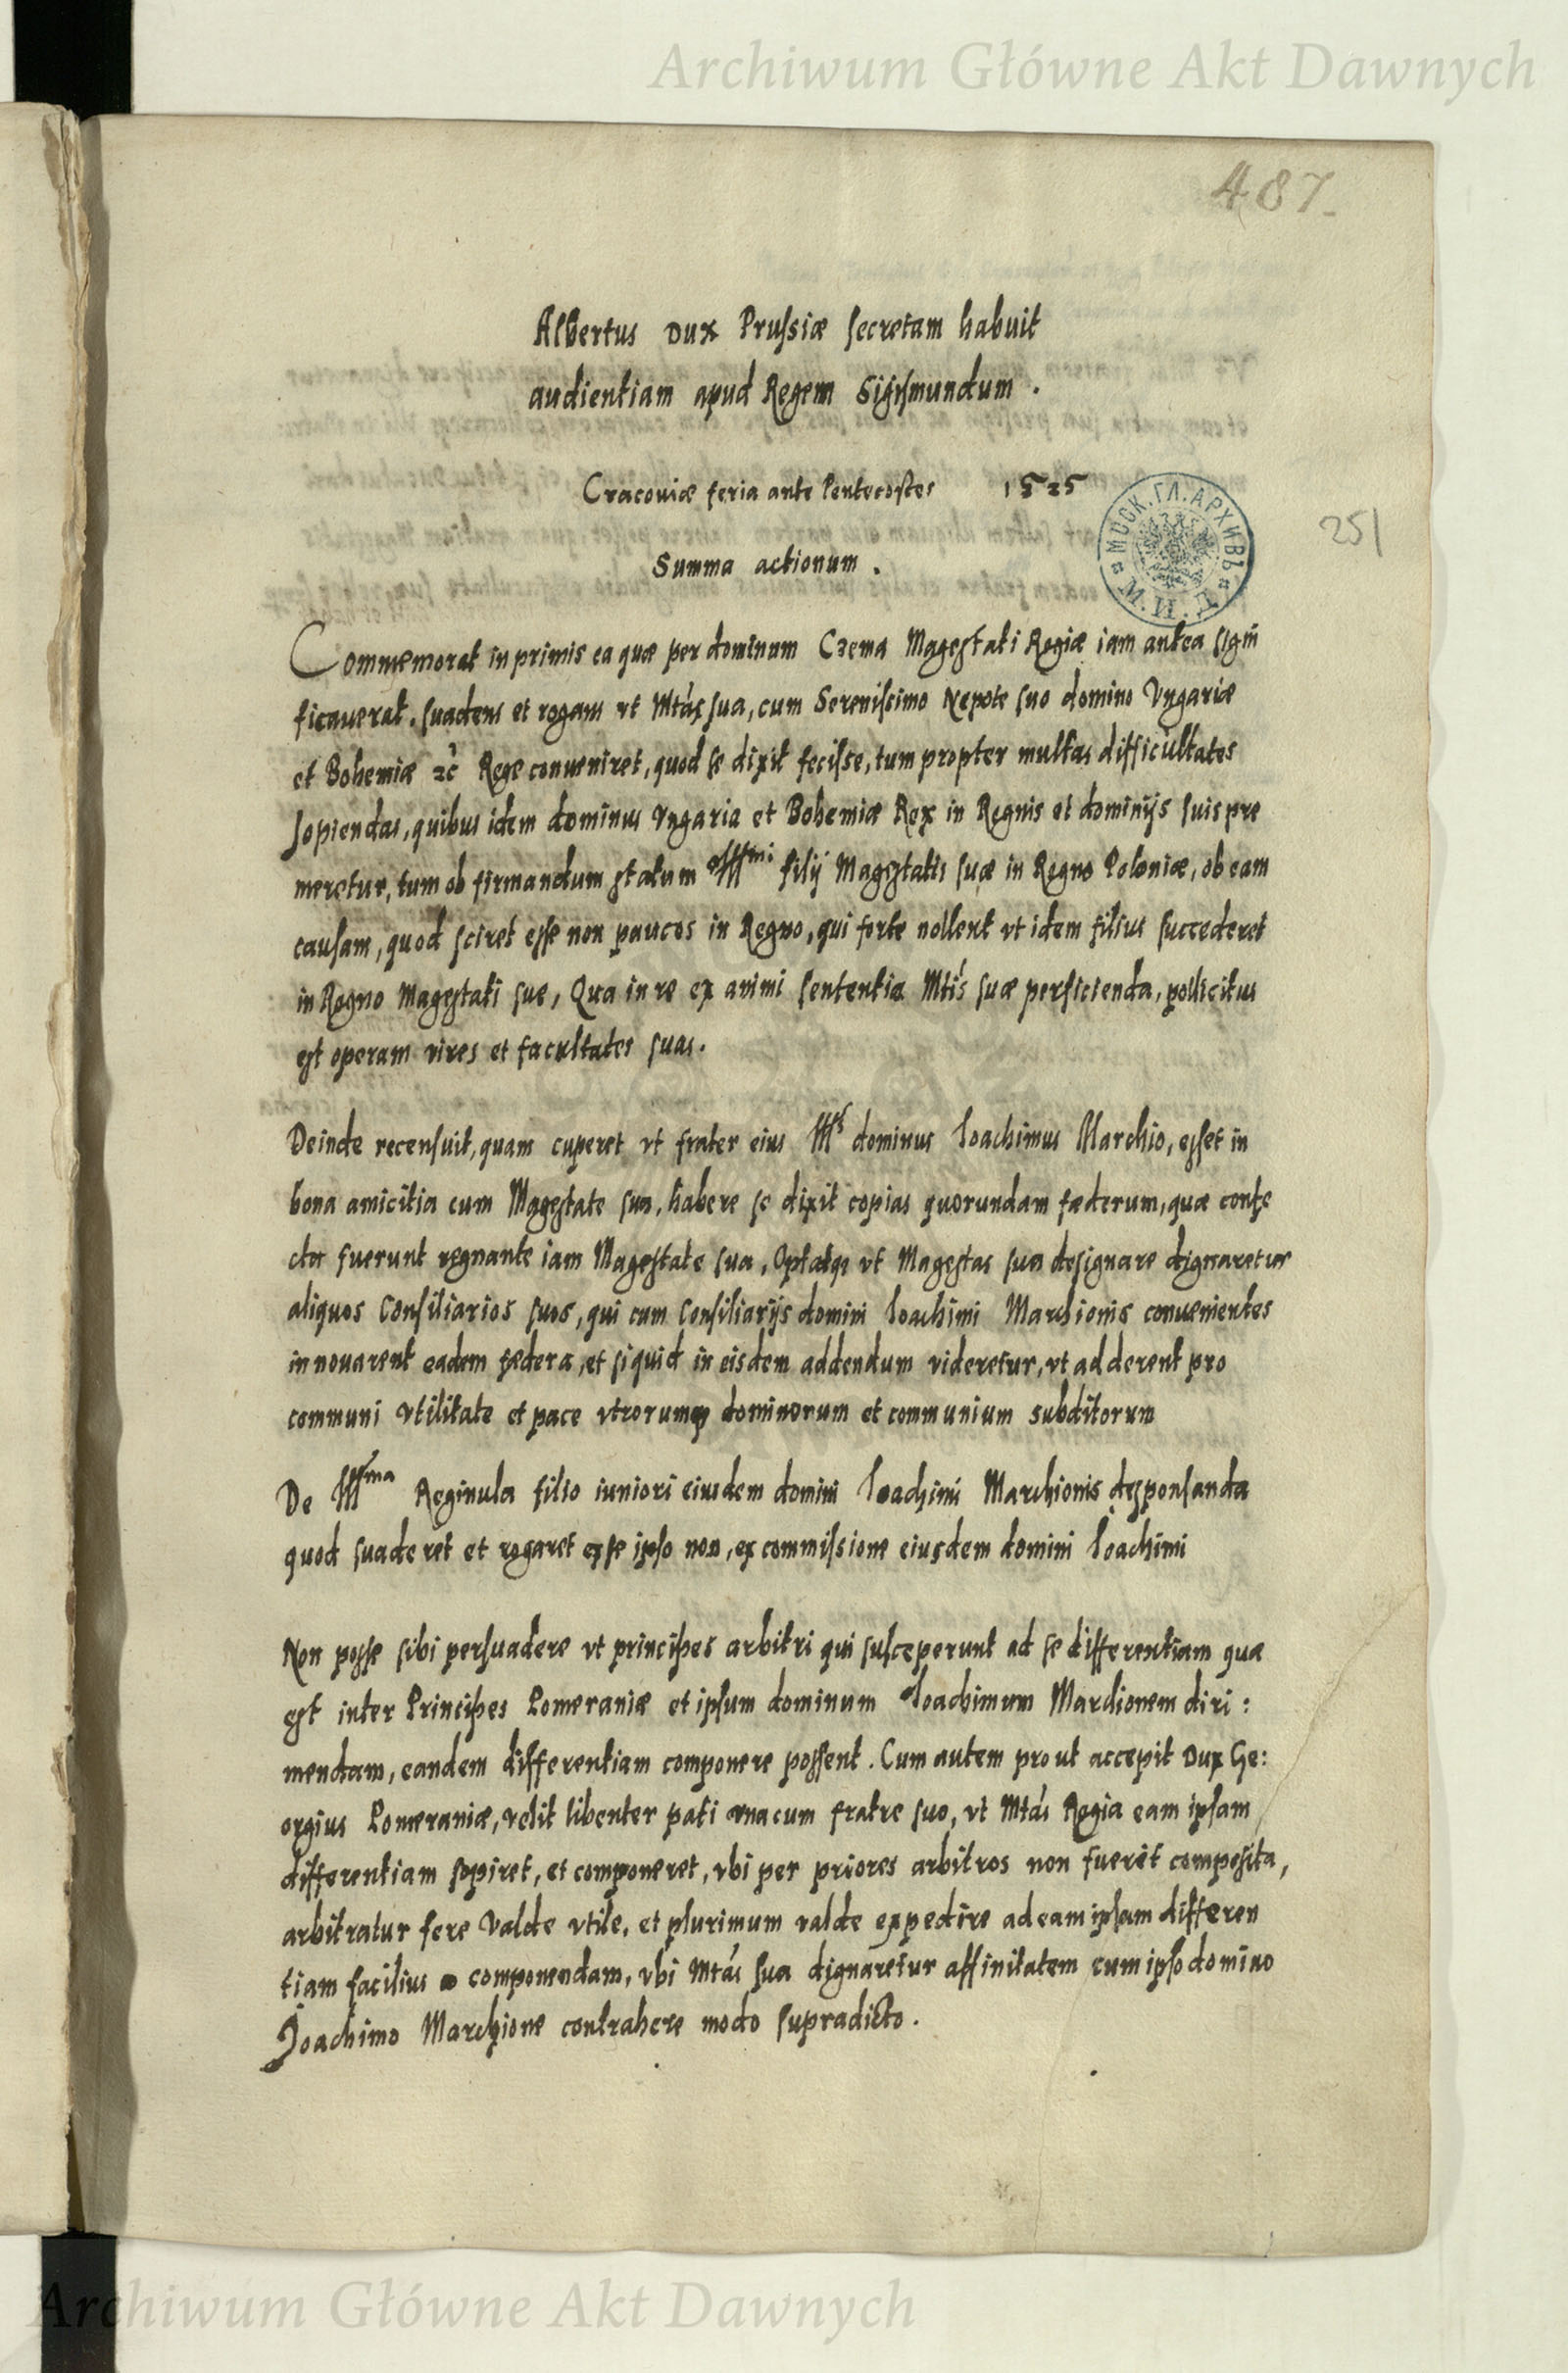 Archiwum Główne Akt Dawnych
487
Albertus Dux Prussiæ secretam habuit
audientiam apud Regem Sigismundum .
Cracoviæ feria ante Pentecostes 1525
251
МОСК. ГЛ. АРХИВЪ
Summa actionum .
Commemorat in primis ea quæ per dominum Czema Magestati Regiæ iam antea signi
ficauerat. suadens et rogans vt Mtás sua, cum Serenissimo Nepote suo domino Vngariæ
et Bohemiæ Rege conueniret, quod se dixit fecisse, tum propter multas difficultates
sopiendas, quibus idem dominus Vngaria et Bohemiæ Rex in Regnis et dominijs suis pre
meretur, tum ob firmandum statum Illmi filij Magestatis suæ in Regno Poloniæ, ob eam
causam, quod sciret esse non paucos in Regno, qui forte nollent vt idem filius succederet
in Regno Magestati suę, Qua in re ex animi sententia Mtis suæ perficienda, pollicitus
est operam vires et facultates suas.
Deinde recensuit, quam cuperet vt frater eius Ills dominus Ioachimus Marchio, esset in
bona amicitia cum Magestate sua, habere se dixit copias quorundam fæderum, quæ confe
cta fuerunt regnante iam Magestate sua, Optatq; vt Magestas sua designare dignaretur
aliquos Consiliarios suos, qui cum Consiliarijs domini Ioachimi Marchionis conuenientes
innouarent eadem fædera, et siquid in eisdem addendum videretur, vt adderent pro
communi vtilitate et pace vtrorumq; dominorum et communium subditorum
De Illma Reginula filio iuniori eiusdem domini Ioachimi Marchionis desponsanda
quod suaderet et rogaret esse ipso non, ex commissione eiusdem domini Ioachimi
Non posse sibi persuadere vt principes arbitri qui susceperunt ad se differentiam quæ
est inter Principes Pomeraniæ et ipsum dominum Ioachimum Marchionem diri :
mendam, eandem differentiam componere possent. Cum autem prout accepit Dux Ge:
orgius Pomeraniæ, velit libenter pati vna cum fratre suo, vt Mtás Regia eam ipsam
differentiam sopiret, et componeret, vbi per priores arbitros non fuerit composita,
arbitratur fere valde vtile, et plurimum valde expedire ad eam ipsam differen
tiam facilius componendam, vbi Mtás sua dignaretur affinitatem cum ipso domino
Joachimo Marchione contrahere modo supradicto.
Archiwum Główne Akt Dawnych